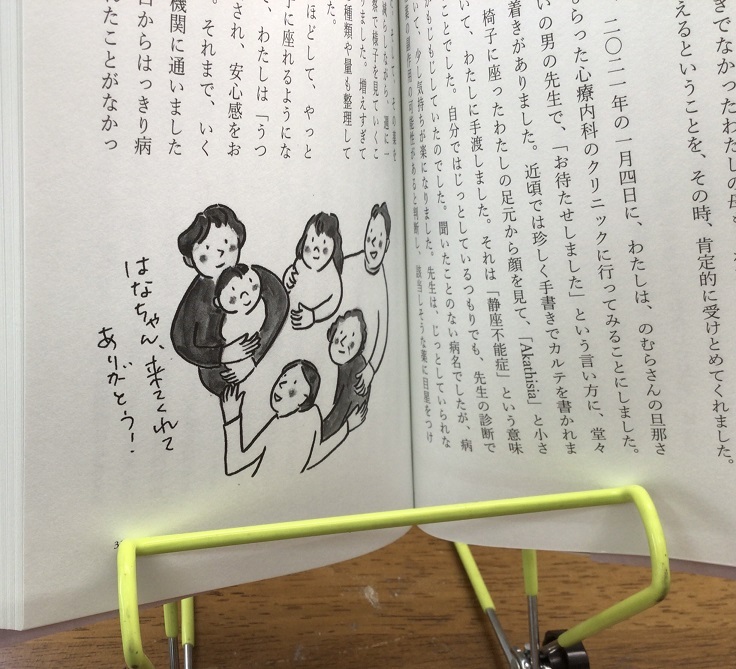 きでなかったわたしの母
えるということを、その時、肯定的に受けとめてくれました。
二〇二一年の一月四日に、わたしは、のむらさんの旦那さ
もらった心療内科のクリニックに行ってみることにしました。
いの男の先生で、「お待たせしました」という言い方に、堂々
着きがありました。近頃では珍しく手書きでカルテを書かれま
椅子に座ったわたしの足元から顔を見て、「Akathisia」と小さ
いて、わたしに手渡しました。それは「静座不能症」という意味
ことでした。自分ではじっとしているつもりでも、先生の診断で
がもじもじしていたのでした。聞いたことのない病名でしたが、病
いて、少し気持ちが楽になりました。先生は、じっとしていられな
の副作用の可能性があると判断し、該当しそうな薬に目星をつけ
そして、その薬を
減らしながら、週に一
察で様子を見ていくこ
りました。増えすぎて
種類や量も整理して
た。
ほどして、やっと
子に座れるようにな
、わたしは「うつ
され、安心感をお
。それまで、いく
機関に通いました
日からはっきり病
たことがなかっ
はなちゃん、来てくれて
ありがとう!